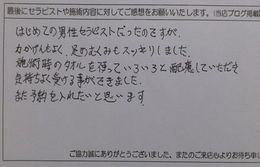 最後にセラピストや施術内容に対してご感想をお願いいたします。(当店ブログ掲載
はじめての男性セラピストだったのですが、
力かげんもよく、足のむくみもスッキリしました。
施術時のタオルを使っていろいろと配慮していただき
気持ちよく受ける事ができました。
また予約を入れたいと思います。
ご協力誠にありがとうございました。またのご来店心よりお待ち申し